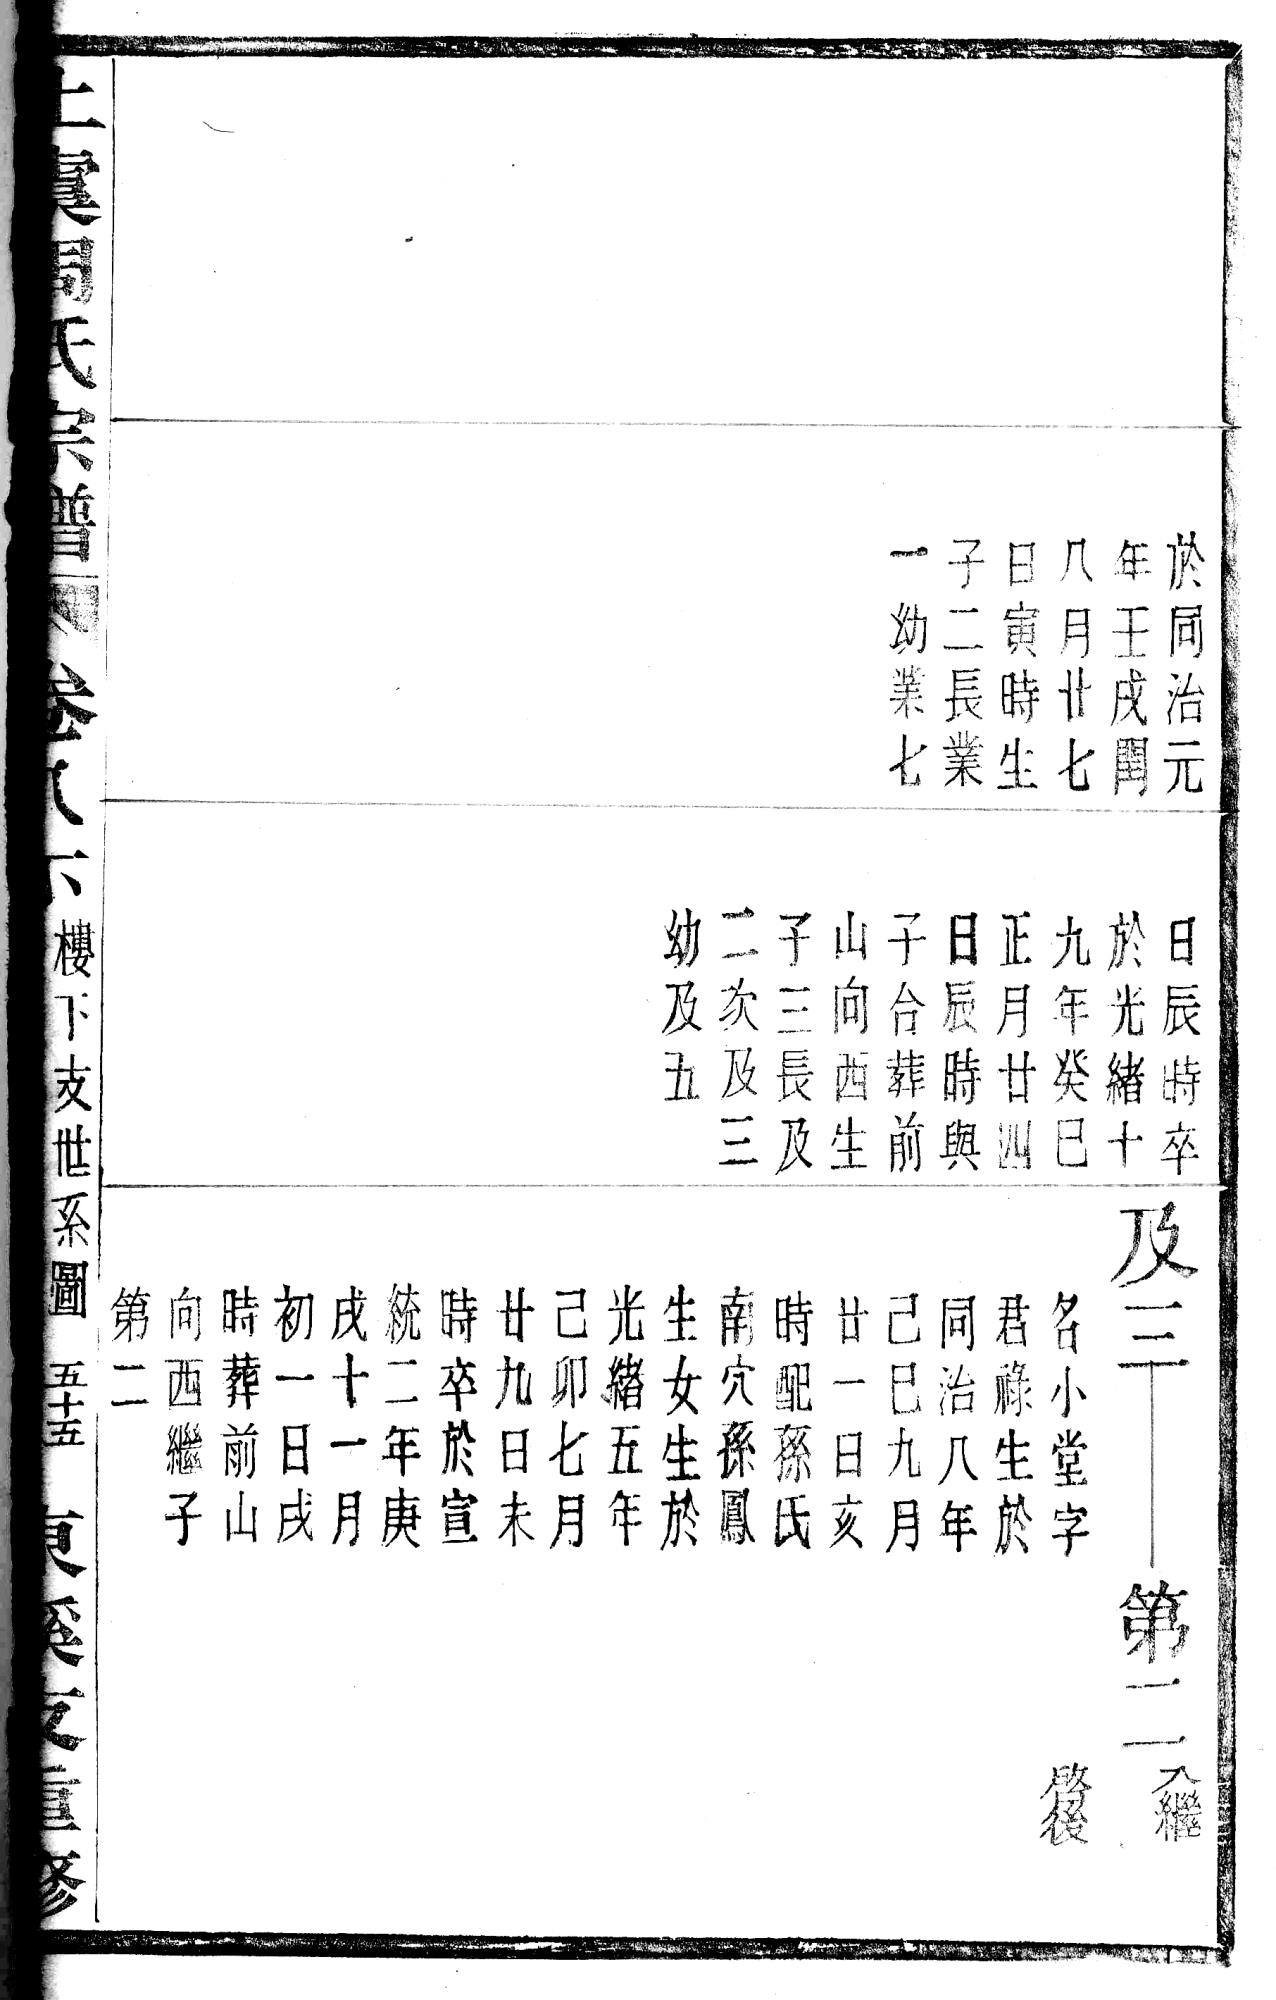 於同治元
年壬戌閏
八月廿七
日寅時生
子二長業
一幼業七
日辰時卒
於光緒十
九年癸巳
正月廿四
日辰時與
子合葬前
山向西生
子三長及
二次及三
幼及五
及三
第二
入繼
啓後
名小堂字
君祿生於
同治八年
己巳九月
廿一日亥
時配孫氏
南穴孫鳳
生女生於
光緒五年
己卯七月
廿九日未
時卒於宣
統二年庚
戌十一月
初一日戌
時葬前山
向西繼子
第二
上虞周氏宗譜 卷八下 樓下支世系圖 五十五 東溪重修